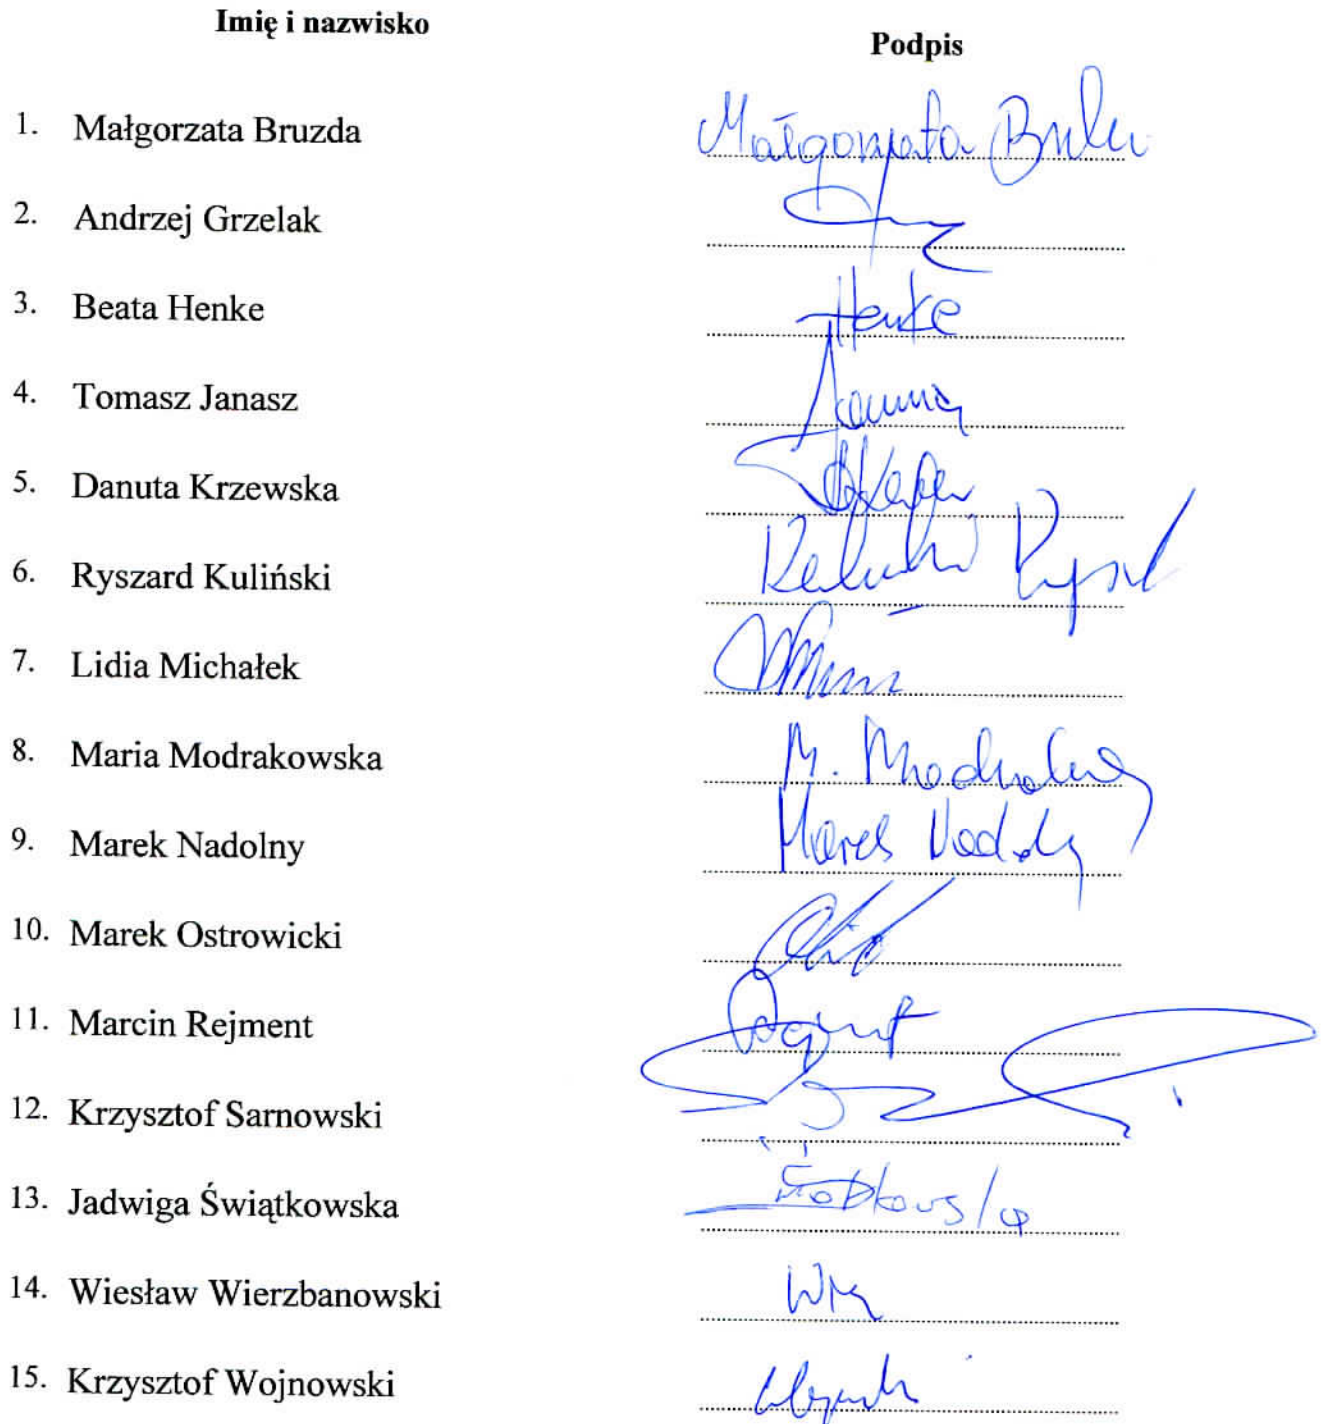 Imię i nazwisko
Podpis
1. Małgorzata Bruzda Małgorzata
2. Andrzej Grzelak
3. Beata Henke Henke
4. Tomasz Janasz
5. Danuta Krzewska
6. Ryszard Kuliński
7. Lidia Michałek
8. Maria Modrakowska M.
9. Marek Nadolny Marek Nadolny
10. Marek Ostrowicki
11. Marcin Rejment
12. Krzysztof Sarnowski
13. Jadwiga Świątkowska
14. Wiesław Wierzbanowski
15. Krzysztof Wojnowski